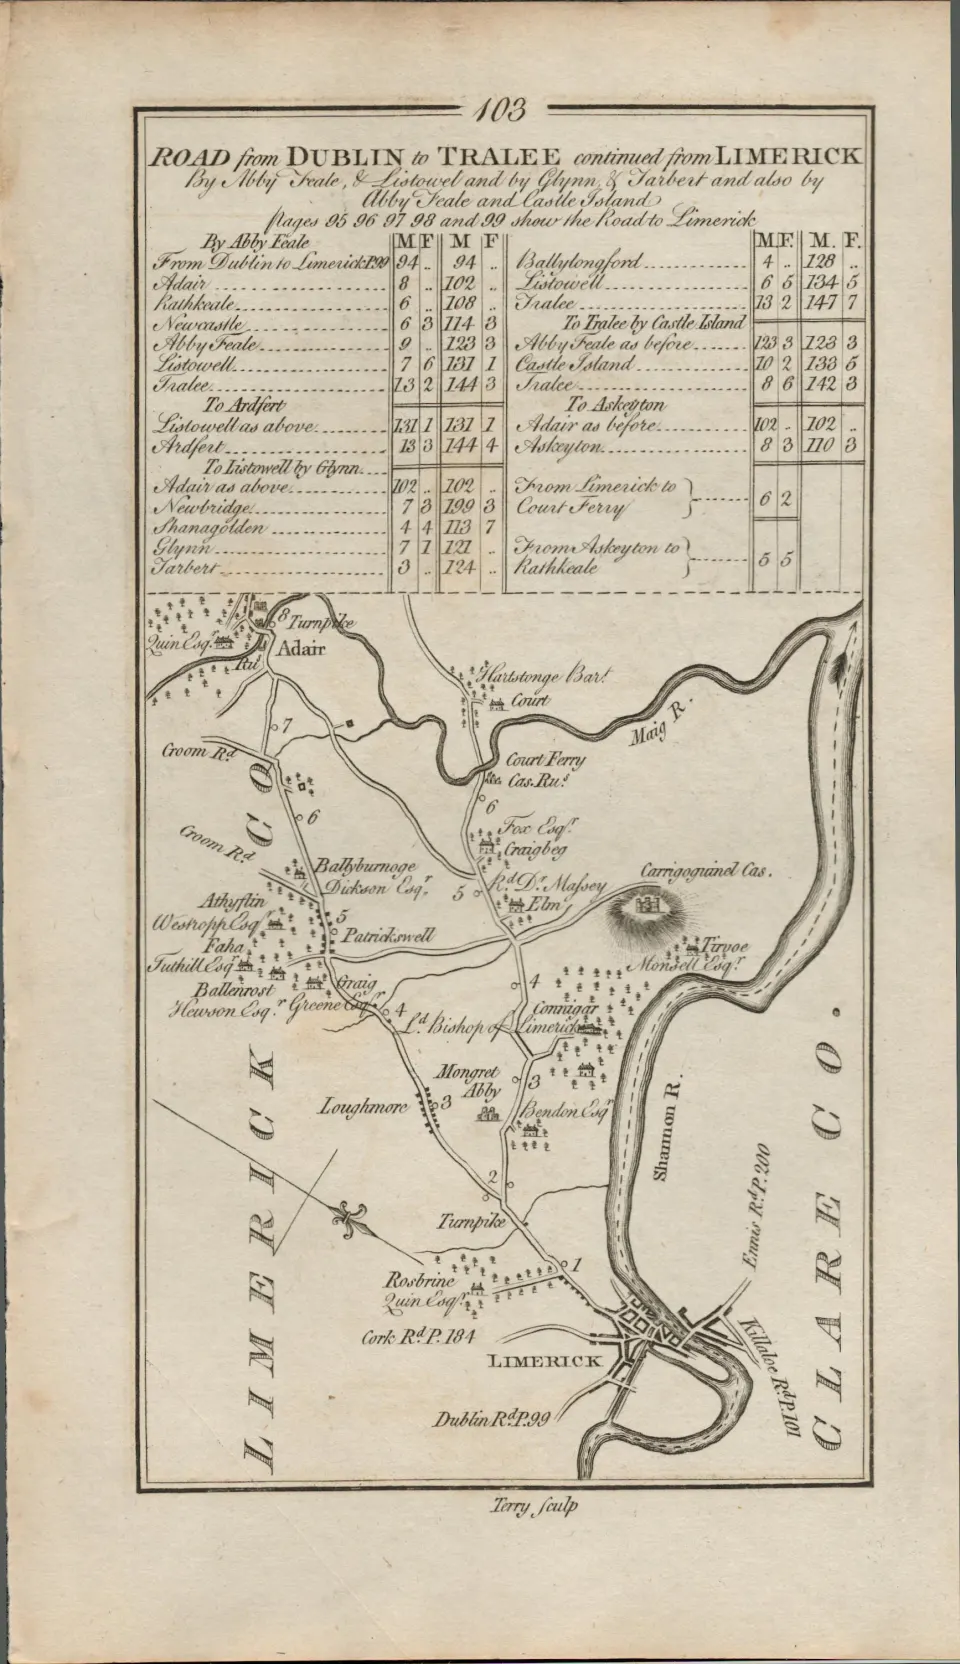 103
ROAD from DUBLIN to TRALEE continued from LIMERICK
By Abby Feale, & Listowel and by Glynn, & Tarbert and also by
Abby Feale and Castle Island
Pages 95 96 97 98 and 99 show the Road to Limerick
By Abby Feale M. F M F
From Dublin to Limerick P.99 94 .. 94 ..
Adair 8 .. 102 ..
Rathkeale 6 .. 108 ..
Newcastle 6 3 114 3
Abby Feale 9 .. 123 3
Listowell 7 6 131 1
Tralee 13 2 144 3
To Ardfert
Listowell as above 131 1 131 1
Ardfert 13 3 144 4
To Listowell by Glynn
Adair as above 102 .. 102 ..
Newbridge 7 3 199 3
Shanagolden 4 4 113 7
Glynn 7 1 121 ..
Tarbert 3 .. 124 ..
M. F. M. F.
Ballylongford 4 .. 128 ..
Listowell 6 5 134 5
Tralee 13 2 147 7
To Tralee by Castle Island
Abby Feale as before 123 3 123 3
Castle Island 10 2 133 5
Tralee 8 6 142 3
To Askeyton
Adair as before 102 .. 102 ..
Askeyton 8 3 110 3
From Limerick to
Court Ferry 6 2
From Askeyton to
Rathkeale 5 5
8 Turnpike
Quin Esqr.
Adair
Ru.
Hartstonge Bart.
Court
7
Maig R.
Croom Rd.
Court Ferry
Cas. Rus.
6
6
Fox Esqr.
Craigbeg
Croom Rd
Ballyburnoge
Dickson Esqr.
5
Rd. Dr. Massey
Elm
Carrigoguinel Cas.
Athyflin
Westropp Esqr
5
Patrickswell
Faha
Tuthill Esqr
Tirvoe
Monsell Esqr.
Ballenrost
Hewson Esqr
Graig
Greene Esqr
4
4
Connigar
Ld. Bishop of Limerick
Mongret
Abby
3
Loughmore
3
Bendon Esqr
Shannon R.
2
Turnpike
Ennis Rd. P. 200
1
Rosbrine
Quin Esqr.
Cork Rd. P. 184
LIMERICK
Killaloe Rd. P. 101
Dublin Rd. P. 99
LIMERICK CO
CLARE CO.
Terry sculp